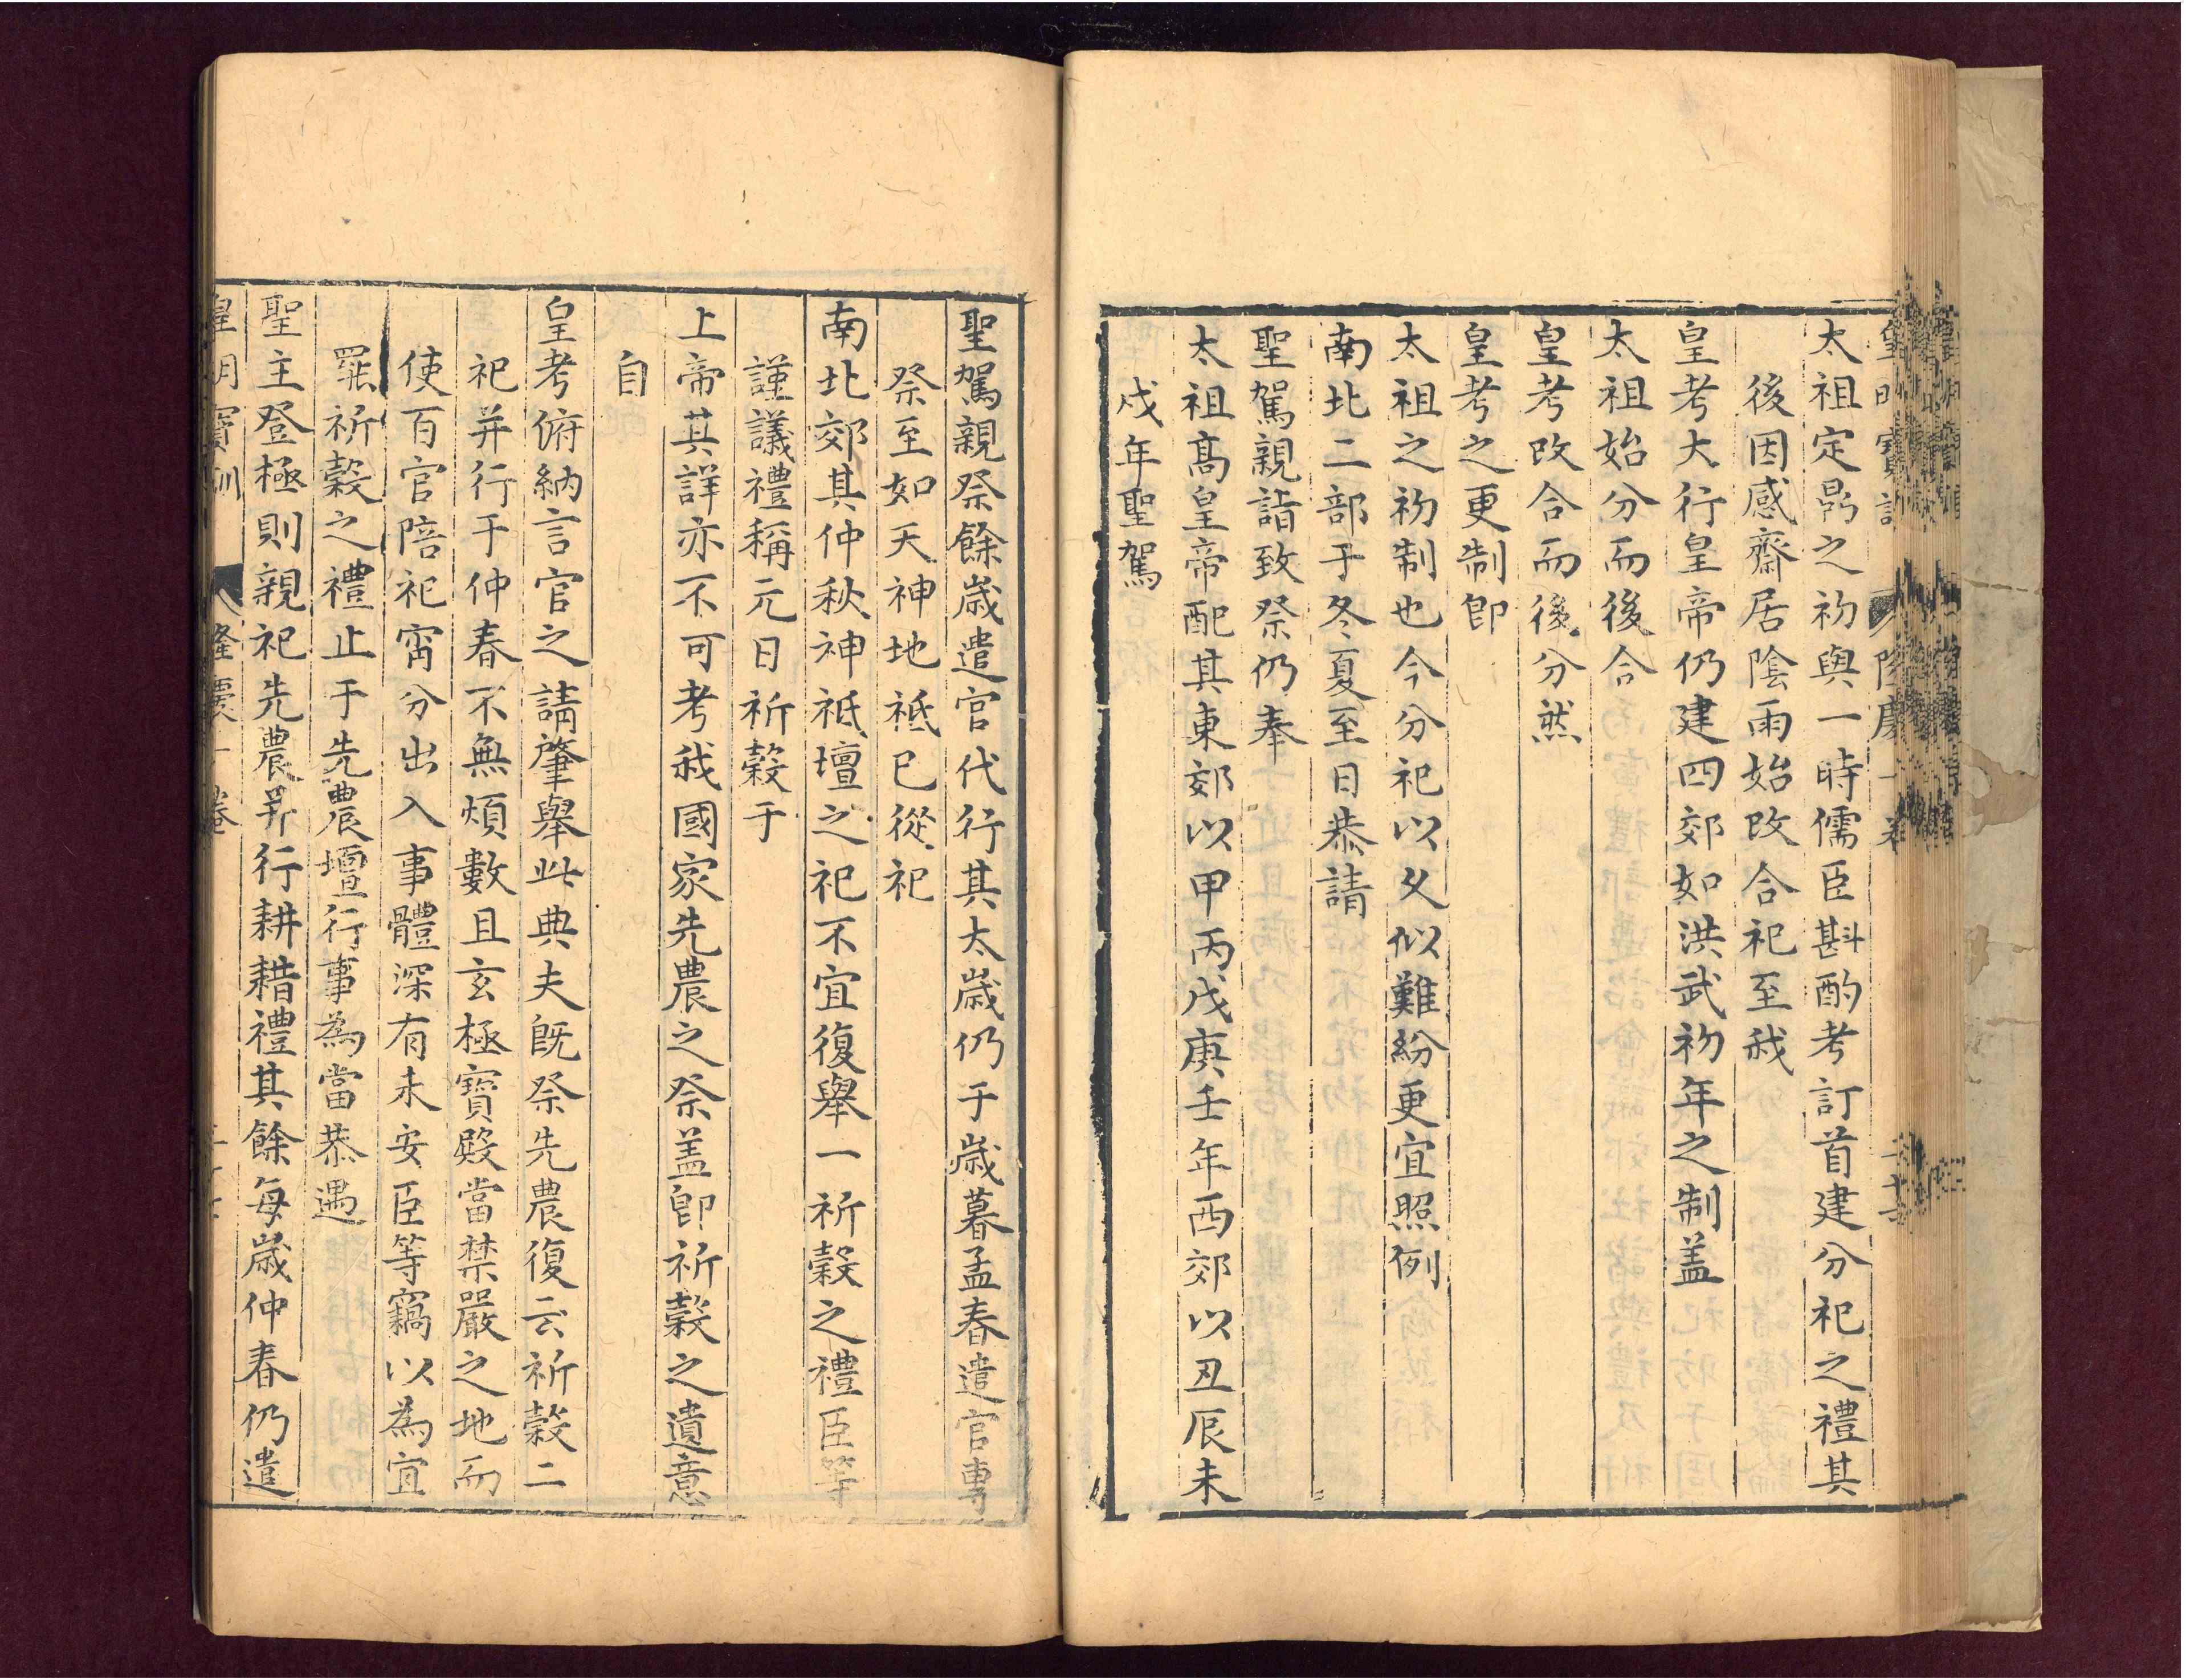 皇明寶訓 隆慶一卷
太祖定鼎之初與一時儒臣斟酌考訂首建分祀之禮其
後因感齋居陰雨始改合祀至我
皇考大行皇帝仍建四郊如洪武初年之制盖
太祖始分而後合
皇考改合而後分然
皇考之更制卽
太祖之初制也今分祀以久似難紛更宜照例
南北二郊于冬夏至日恭請
聖駕親詣致祭仍奉
太祖高皇帝配其東郊以甲丙戊庚壬年西郊以丑辰未
戌年聖駕
聖駕親祭餘歲遣官代行其太歲仍于歲暮孟春遣官專
祭至如天神地祗已從祀
南北郊其仲秋神祗壇之祀不宜復舉一祈穀之禮臣等
謹議禮稱元日祈穀于
上帝其詳亦不可考我國家先農之祭盖卽祈穀之遺意
自
皇考俯納言官之請肇舉此典夫旣祭先農復云祈穀二
祀并行于仲春不無煩數且玄極寶殿當禁嚴之地而
使百官陪祀宵分出入事體深有未安臣等竊以為宜
罷祈穀之禮止于先農壇行事為當恭遇
聖主登極則親祀先農并行耕耤禮其餘每歲仲春仍遣
皇明寶訓 隆慶一卷